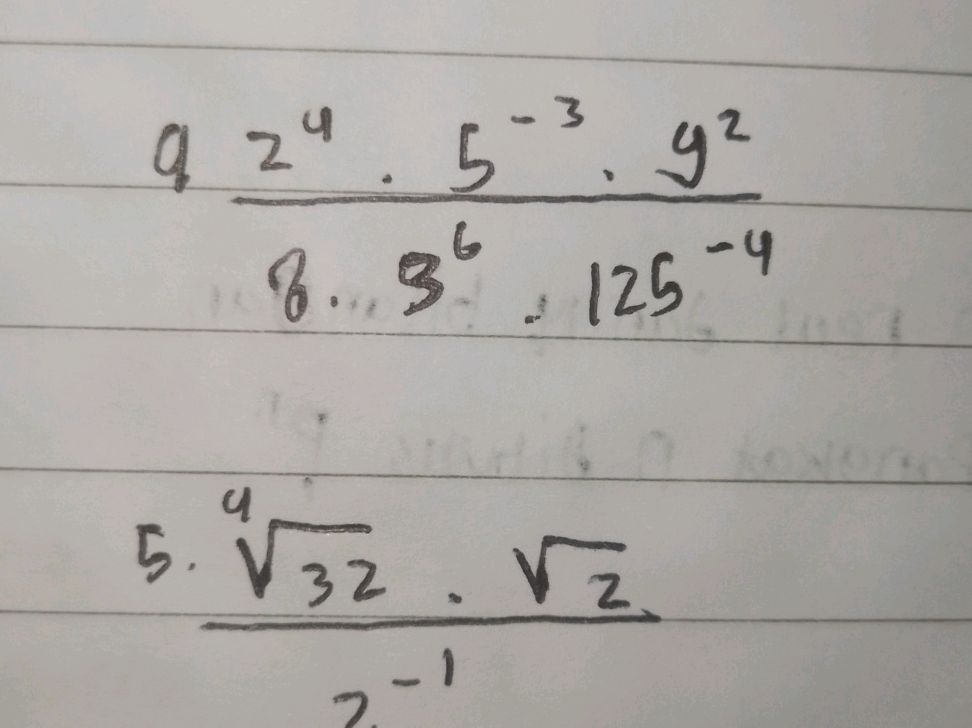 4 2⁴ . 5⁻³ . 9²
8 . 3⁶ . 125⁻⁴
5. ⁴√32 . √2
2⁻¹